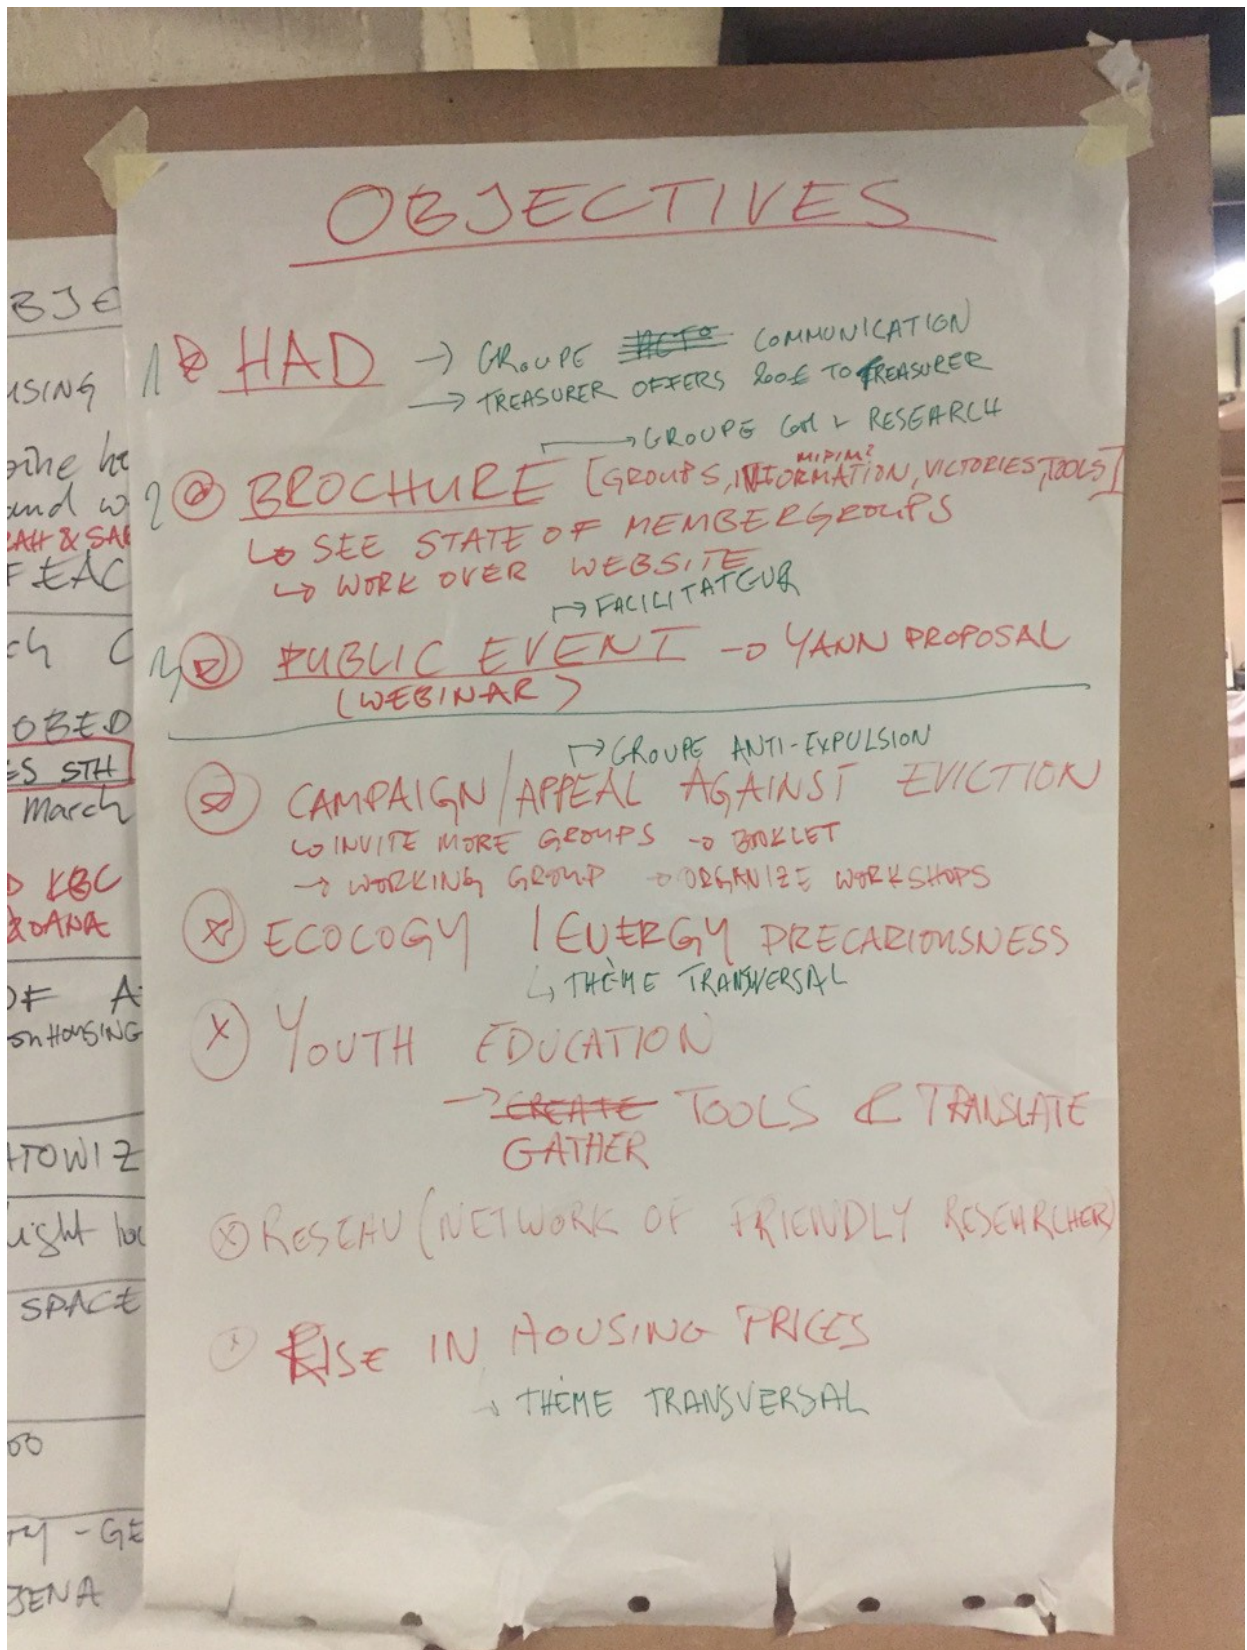 OBJECTIVES
1 HAD → GROUPE COMMUNICATION
→ TREASURER OFFERS 200€ TO TREASURER
→ GROUPE COM & RESEARCH
MIPIM?
2 BROCHURE [GROUPS, INFORMATION, VICTORIES, TOOLS]
↳ SEE STATE OF MEMBERGROUPS
↳ WORK OVER WEBSITE
→ FACILITATEUR
3 PUBLIC EVENT → YANN PROPOSAL
(WEBINAR)
→ GROUPE ANTI-EXPULSION
CAMPAIGN/APPEAL AGAINST EVICTION
↳ INVITE MORE GROUPS → BOOKLET
→ WORKING GROUP → ORGANIZE WORKSHOPS
ECOLOGY / ENERGY PRECARIOUSNESS
↳ THÈME TRANSVERSAL
YOUTH EDUCATION
→ CREATE TOOLS & TRANSLATE
GATHER
RESEAU (NETWORK OF FRIENDLY RESEARCHER)
RISE IN HOUSING PRICES
↳ THÈME TRANSVERSAL
BJE
USING
and w
RAH & SA
F EAC
ch C
OBED
ES STH
March
KBC
& OANA
OF A
on HOUSING
ATOWIZ
SPACE
TY - GE
JENA